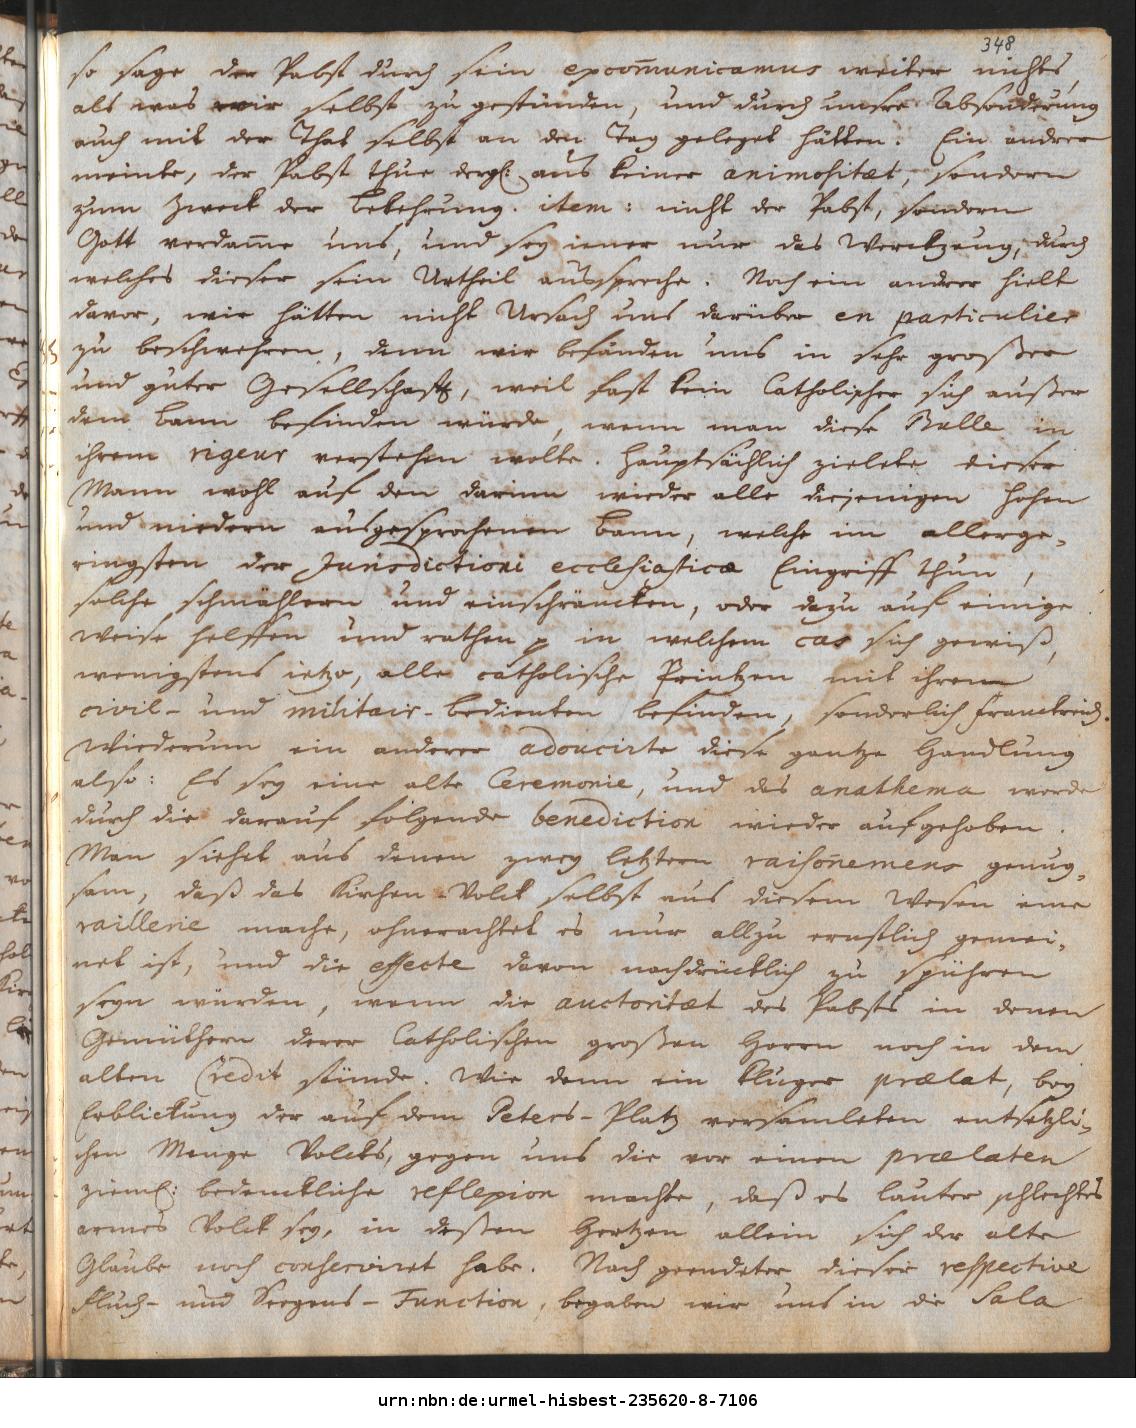 348
so sage der Pabst durch sein excom̄unicamus weiter nichts,
als was wir selbst zu gestünden, und durch unsre Absonderung
auch mit der That selbst an den Tag geleget hätten. Ein andrer
meinte, der Pabst thue dergl: aus keiner animositæt, sondern
zum Zweck der Bekehrung. item: nicht der Pabst, sondern
Gott verdam̄e uns, und sey iener nur das Werckzeug, durch
welches dieser sein Urtheil ausspreche. Noch ein andrer hielt
davor, wir hätten nicht Ursach uns darüber en particulier
zu beschwehren, denn wir befänden uns in sehr großer
und guter Gesellschafft, weil fast kein Catholischer sich außer
dem Bann befinden würde, wenn man diese Bulle in
ihrem rigeur verstehen wolte. Hauptsächlich zielete dieser
Mann wohl auf den darinn wieder alle diejenigen hohen
und niedern ausgesprochenen Bann, welche im allerge-
ringsten der Jurisdictioni ecclesiasticæ Eingriff thun,
solche schmählern und einschräncken, oder dazu auf einige
Weise helffen und rathen in welchem cas sich gewiß,
wenigstens ietzo, alle catholische Printzen mit ihren
civil- und militair-bedienten befinden, sonderlich Franckreich.
Wiederum ein anderer adoucirte diese gantze Handlung
also: Es sey eine alte Ceremonie, und das anathema werde
durch die darauf folgende benediction wieder aufgehoben.
Man siehet aus denen zwey letztern raison̄emens genug-
sam, daß das Kirchen-Volck selbst aus diesem Wesen eine
raillerie mache, ohnerachtet es nur allzu ernstlich gemei-
net ist, und die effecte davon nachdrücklich zu spühren
seyn würden, wenn die auctoritæt des Pabsts in denen
Gemüthern derer Catholischen großen Herrn noch in dem
alten Credit stünde. Wie denn ein kluger prælat, bey
Erblickung der auf dem Peters-Platz versamleten entsetzli-
chen Menge Volcks, gegen uns die vor einen prælaten
zieml: bedenckliche reflexion machte, daß es lauter schlechtes
armes Volck sey, in deßen Hertzen allein sich der alte
Glaube noch conserviret habe. Nach geendeter dieser respective
Fluch- und Seegens-Function, begaben wir uns in die Sala
urn:nbn:de:urmel-hisbest-235620-8-7106